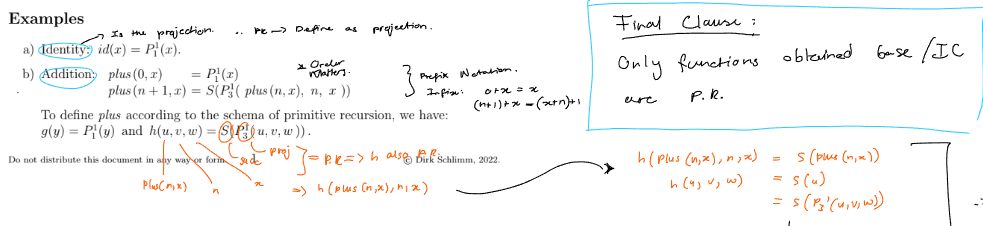 Examples
Is the projection. ∴ PR → Define as projection.
a) Identity: id(x) = P₁¹(x).
b) Addition: plus(0, x) = P₁¹(x)
plus(n + 1, x) = S(P₃¹( plus(n, x), n, x ))
* Order matters.
Prefix Notation.
Infix: 0+x = x
(n+1)+x = (x+n)+1
To define plus according to the schema of primitive recursion, we have:
g(y) = P₁¹(y) and h(u, v, w) = S(P₃¹(u, v, w)).
Do not distribute this document in any way or form
© Dirk Schlimm, 2022.
proj
= P.R => h also P.R.
plus(n,x) n x
=> h(plus(n,x), n, x)
Final Clause:
Only functions obtained base/IC
are P.R.
h(plus(n,x), n, x) = S(plus(n,x))
h(u, v, w) = S(u)
= S(P₃¹(u,v,w))